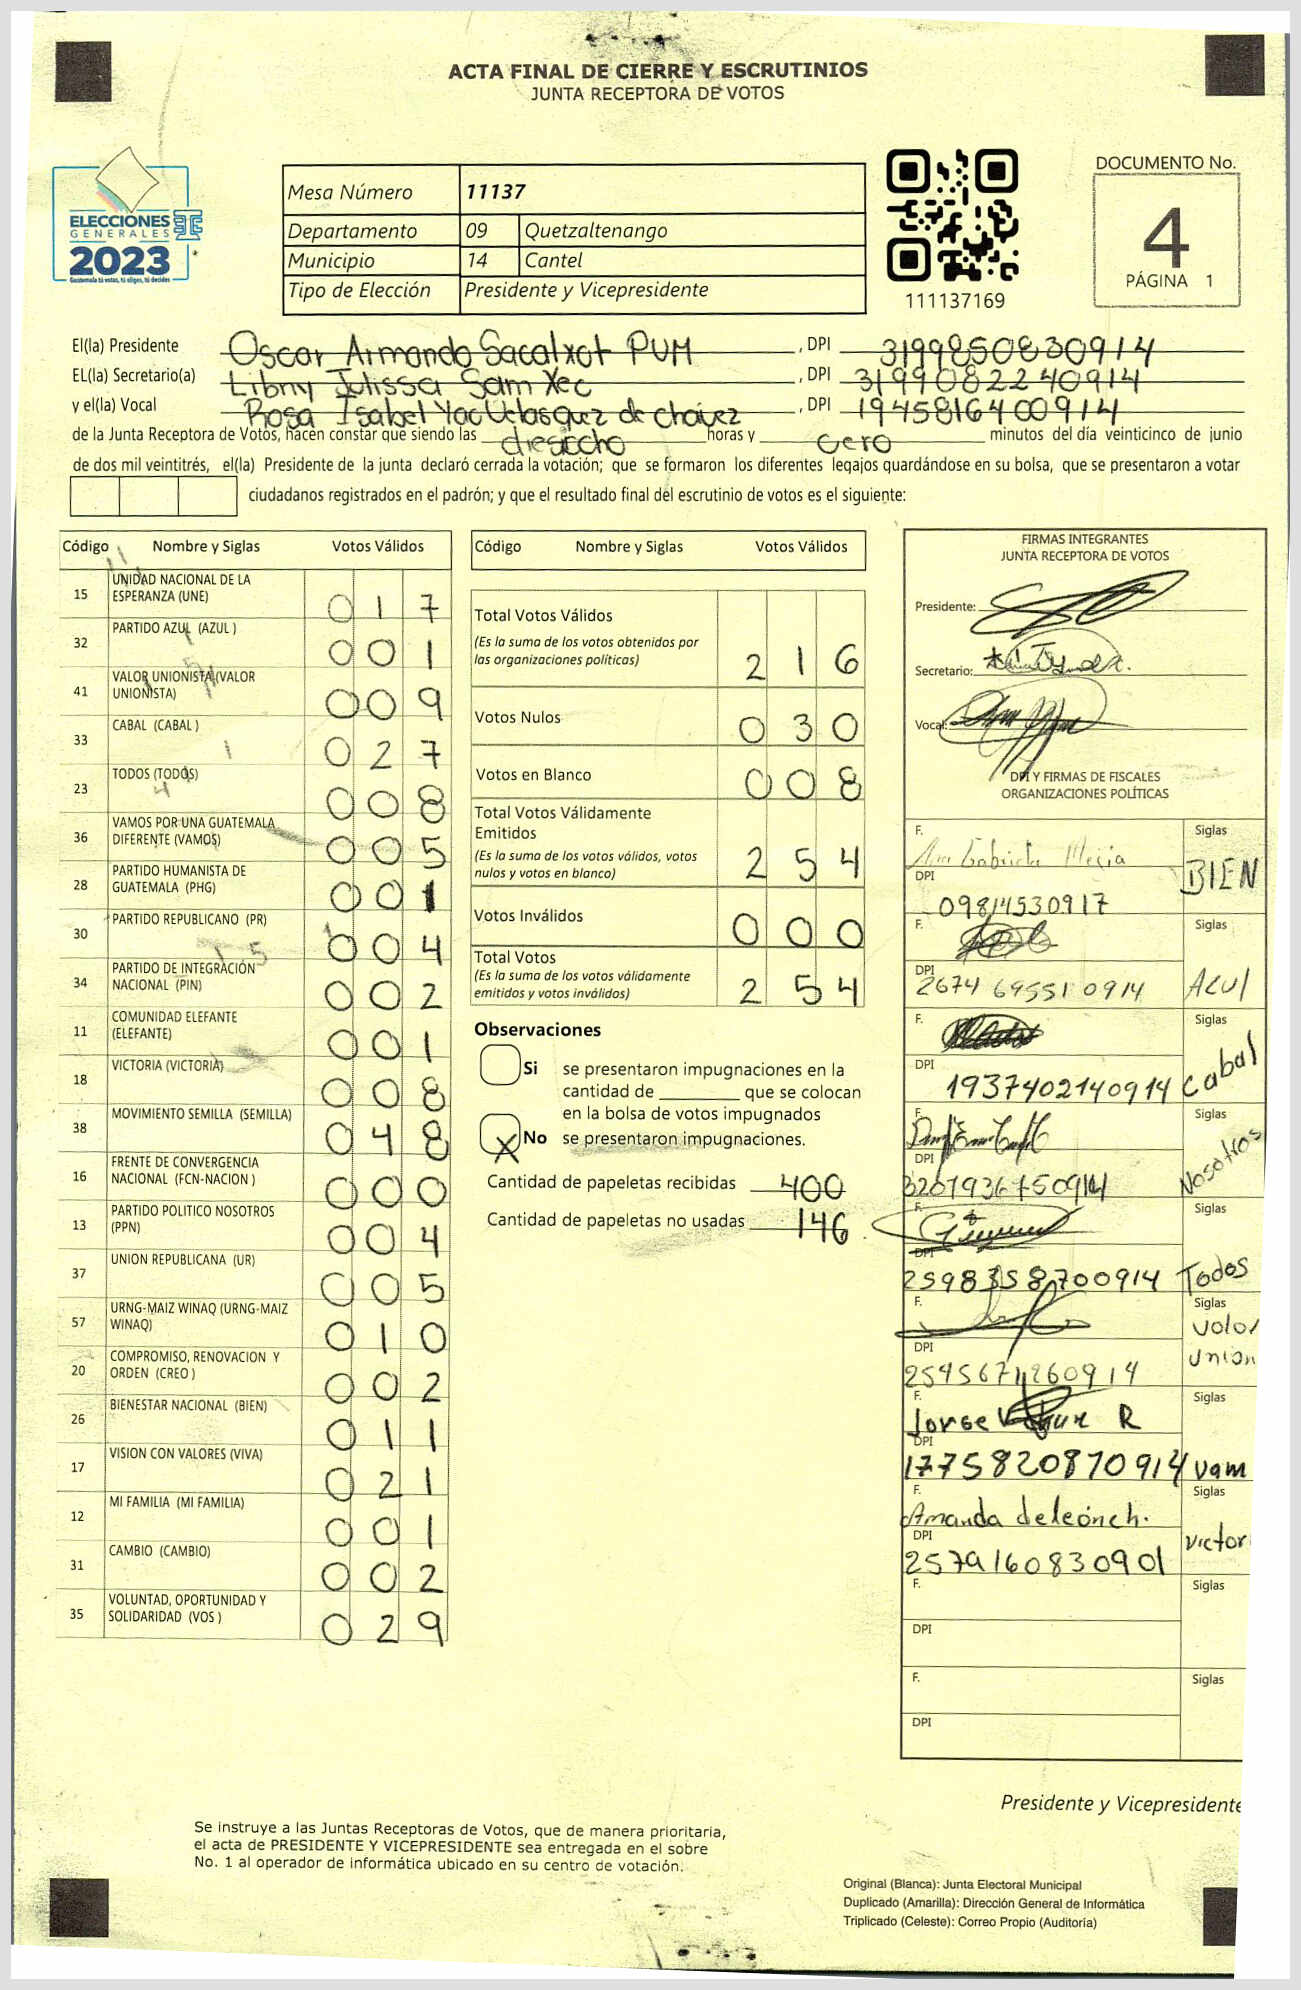 ACTA FINAL DE CIERRE Y ESCRUTINIOS
JUNTA RECEPTORA DE VOTOS
ELECCIONES
GENERALES
2023
Guatemala tú votas, tú eliges, tú decides
Mesa Número 11137
Departamento 09 Quetzaltenango
Municipio 14 Cantel
Tipo de Elección Presidente y Vicepresidente
111137169
DOCUMENTO No.
4
PÁGINA 1
El(la) Presidente Oscar Armando Sacalxot PUM , DPI 3199850830914
EL(la) Secretario(a) Libny Julissa Sam Xec , DPI 3199082240914
y el(la) Vocal Rosa Isabel Yac Velasquez de chávez , DPI 1945816400914
de la Junta Receptora de Votos, hacen constar que siendo las diesiocho horas y cero minutos del día veinticinco de junio
de dos mil veintitrés, el(la) Presidente de la junta declaró cerrada la votación; que se formaron los diferentes legajos quardándose en su bolsa, que se presentaron a votar
ciudadanos registrados en el padrón; y que el resultado final del escrutinio de votos es el siguiente:
Código Nombre y Siglas Votos Válidos
15 UNIDAD NACIONAL DE LA ESPERANZA (UNE) 017
32 PARTIDO AZUL (AZUL ) 001
41 VALOR UNIONISTA (VALOR UNIONISTA) 009
33 CABAL (CABAL ) 027
23 TODOS (TODOS) 008
36 VAMOS POR UNA GUATEMALA DIFERENTE (VAMOS) 005
28 PARTIDO HUMANISTA DE GUATEMALA (PHG) 001
30 PARTIDO REPUBLICANO (PR) 004
34 PARTIDO DE INTEGRACIÓN NACIONAL (PIN) 002
11 COMUNIDAD ELEFANTE (ELEFANTE) 001
18 VICTORIA (VICTORIA) 008
38 MOVIMIENTO SEMILLA (SEMILLA) 048
16 FRENTE DE CONVERGENCIA NACIONAL (FCN-NACION ) 000
13 PARTIDO POLITICO NOSOTROS (PPN) 004
37 UNION REPUBLICANA (UR) 005
57 URNG-MAIZ WINAQ (URNG-MAIZ WINAQ) 010
20 COMPROMISO, RENOVACION Y ORDEN (CREO ) 002
26 BIENESTAR NACIONAL (BIEN) 011
17 VISION CON VALORES (VIVA) 021
12 MI FAMILIA (MI FAMILIA) 001
31 CAMBIO (CAMBIO) 002
35 VOLUNTAD, OPORTUNIDAD Y SOLIDARIDAD (VOS ) 029
Código Nombre y Siglas Votos Válidos
Total Votos Válidos
(Es la suma de los votos obtenidos por
las organizaciones políticas) 216
Votos Nulos 030
Votos en Blanco 008
Total Votos Válidamente
Emitidos
(Es la suma de los votos válidos, votos
nulos y votos en blanco) 254
Votos Inválidos 000
Total Votos
(Es la suma de los votos válidamente
emitidos y votos inválidos) 254
Observaciones
Si se presentaron impugnaciones en la
cantidad de ________ que se colocan
en la bolsa de votos impugnados
X No se presentaron impugnaciones.
Cantidad de papeletas recibidas 400
Cantidad de papeletas no usadas 146
FIRMAS INTEGRANTES
JUNTA RECEPTORA DE VOTOS
Presidente:
Secretario:
Vocal:
DPI Y FIRMAS DE FISCALES
ORGANIZACIONES POLÍTICAS
F. Ana Gabriela Mejia Siglas
DPI 09814530917 BIEN
F. Siglas
DPI 2674 69551 0914 Azul
F. Siglas
DPI 1937402140914 Cabal
F. Siglas
DPI 3207936750914 Nosotros
F. Siglas
DPI 2598358700914 Todos
F. Siglas
DPI 2545671260914 Valor Union
F. Jorge R Siglas
DPI 1775820870914 Vam
F. Amanda de león ch. Siglas
DPI 2579160830901 Victor
F. Siglas
DPI
F. Siglas
DPI
Presidente y Vicepresidente
Se instruye a las Juntas Receptoras de Votos, que de manera prioritaria,
el acta de PRESIDENTE Y VICEPRESIDENTE sea entregada en el sobre
No. 1 al operador de informática ubicado en su centro de votación.
Original (Blanca): Junta Electoral Municipal
Duplicado (Amarilla): Dirección General de Informática
Triplicado (Celeste): Correo Propio (Auditoría)